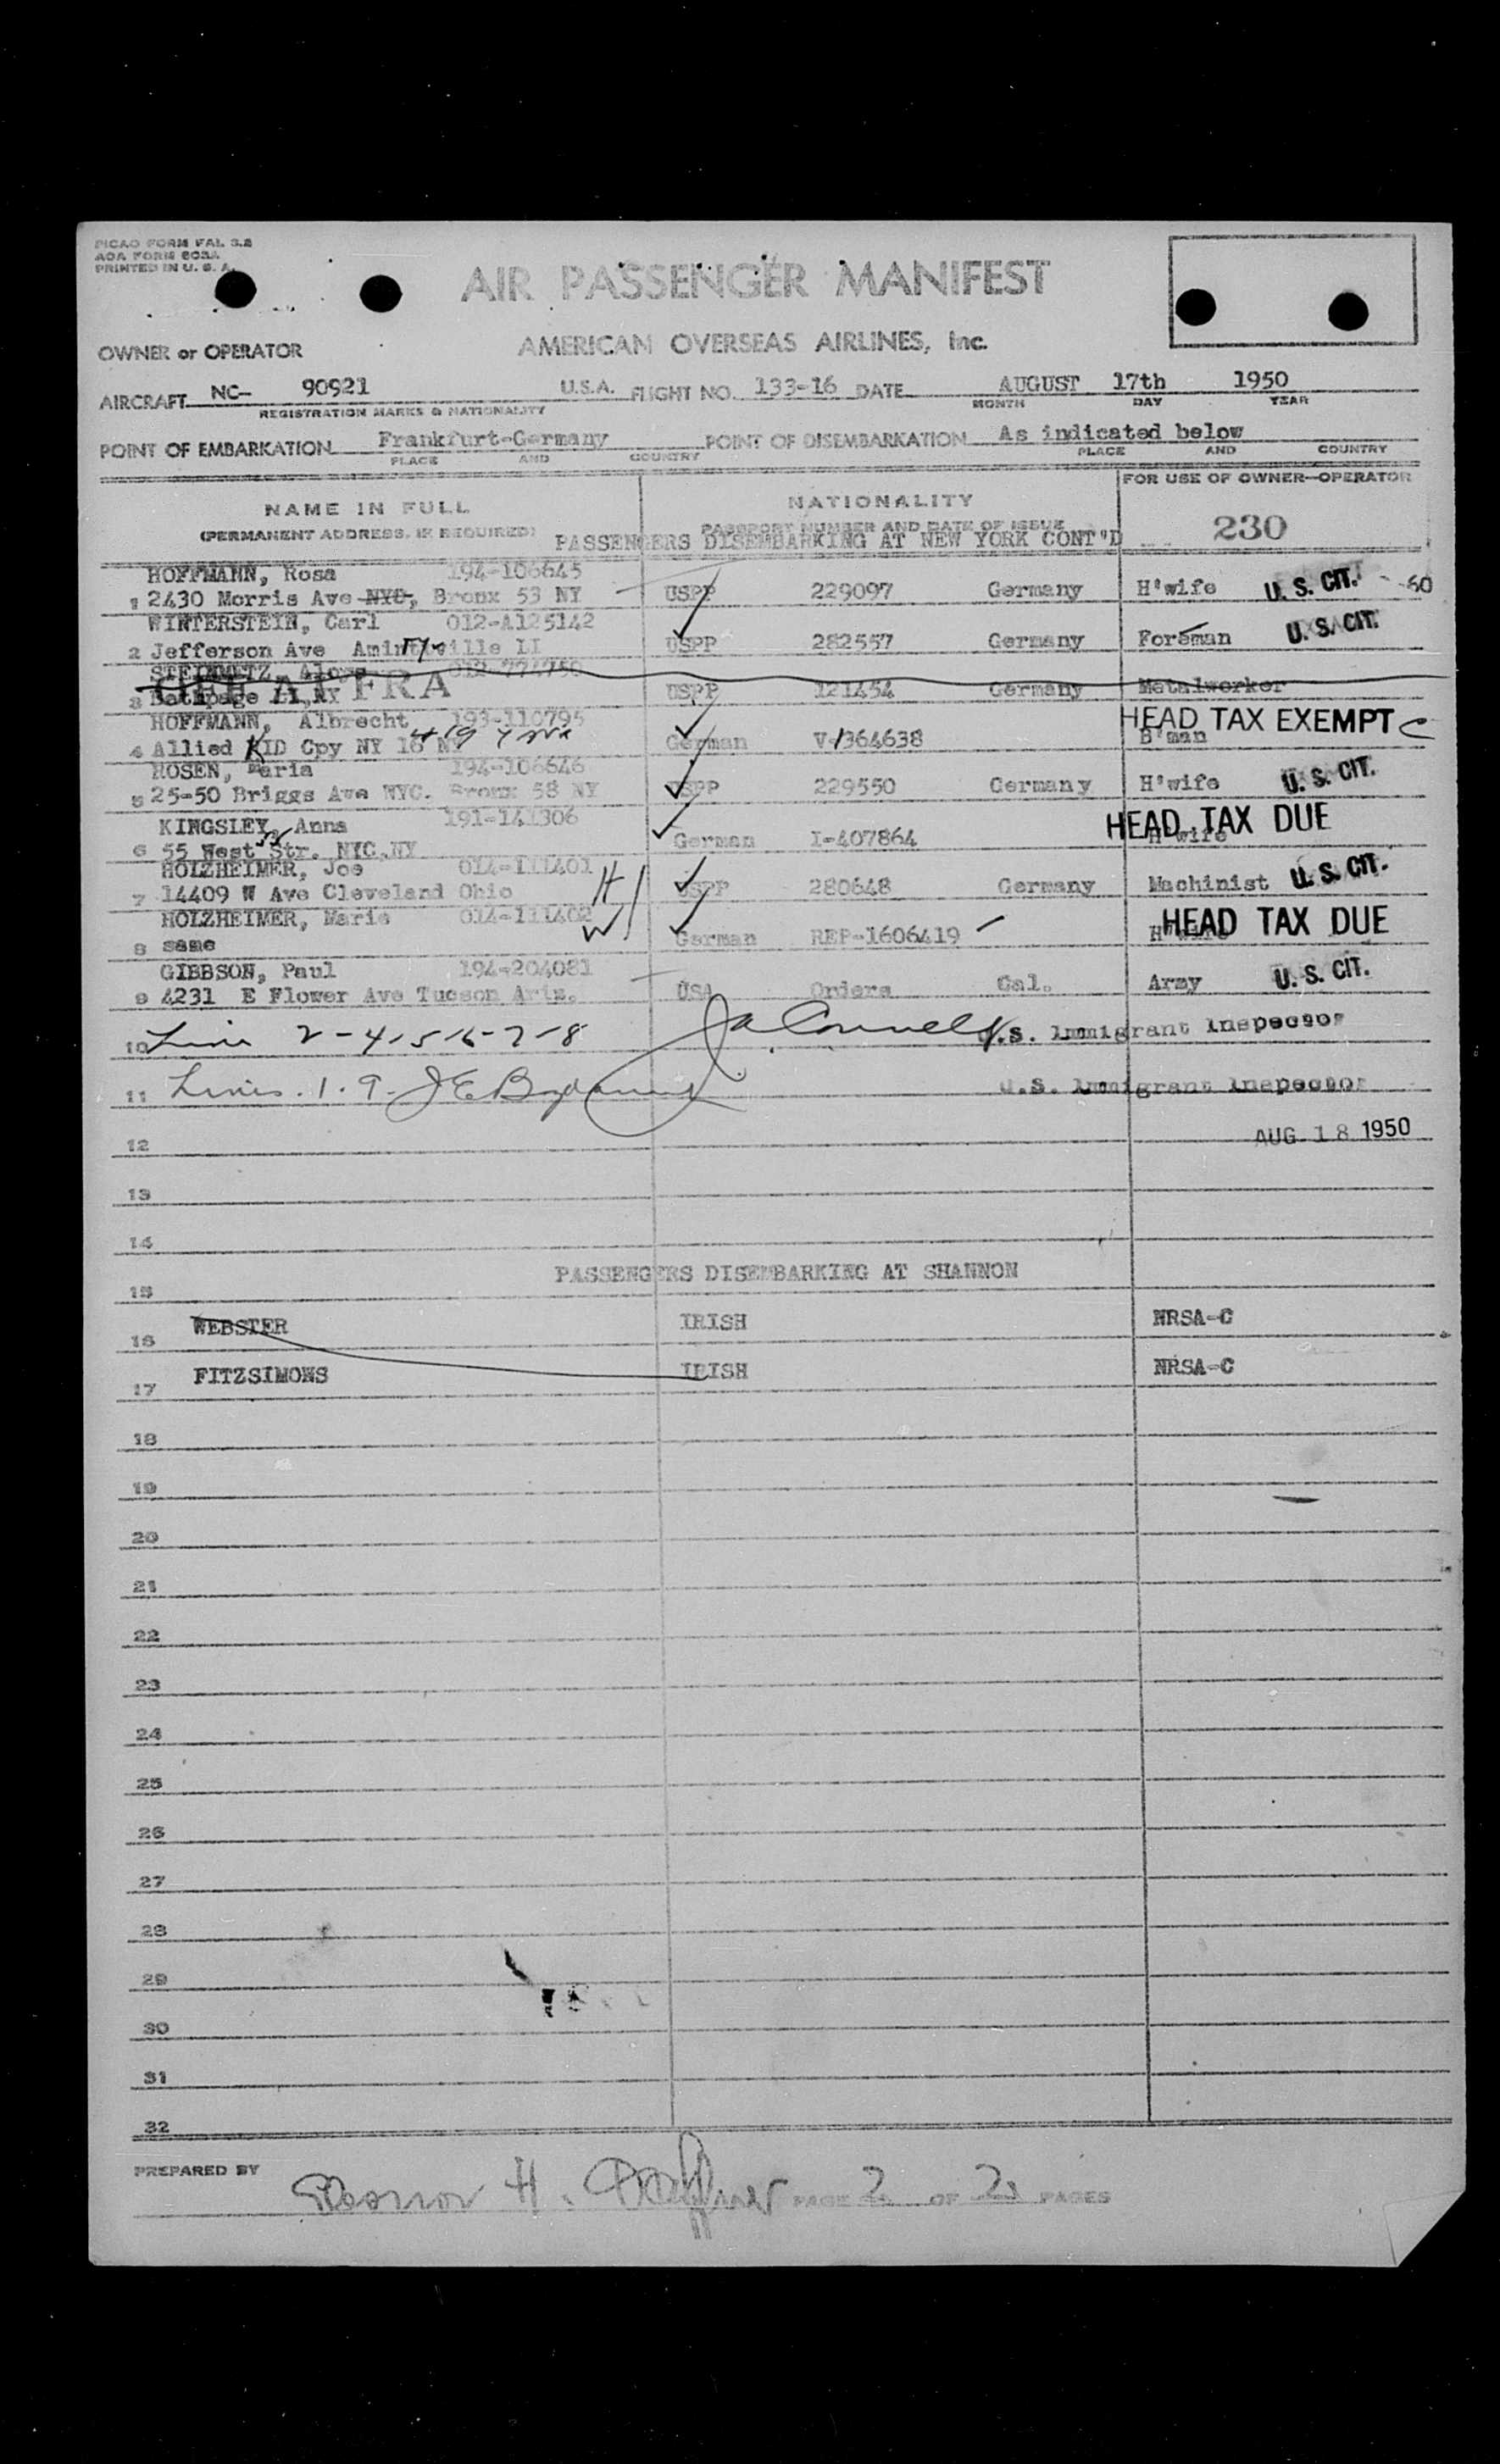 PICAO FORM FAL 3.2
AOA FORM 603A
PRINTED IN U. S. A.
AIR PASSENGER MANIFEST
OWNER or OPERATOR AMERICAN OVERSEAS AIRLINES, Inc.
AIRCRAFT NC- 90921 U.S.A. FLIGHT NO. 133-16 DATE AUGUST 17th 1950
REGISTRATION MARKS & NATIONALITY MONTH DAY YEAR
POINT OF EMBARKATION Frankfurt-Germany POINT OF DISEMBARKATION As indicated below
PLACE AND COUNTRY PLACE AND COUNTRY
NAME IN FULL NATIONALITY FOR USE OF OWNER—OPERATOR
(PERMANENT ADDRESS, IF REQUIRED) PASSPORT NUMBER AND DATE OF ISSUE 230
PASSENGERS DISEMBARKING AT NEW YORK CONT'D
HOFFMANN, Rosa 194-106645
1 2430 Morris Ave NYC, Bronx 53 NY USPP 229097 Germany H'wife U. S. CIT. -60
WINTERSTEIN, Carl 012-A125142
2 Jefferson Ave Amintyville LI USPP 282557 Germany Foreman U. S. CIT.
STEINMETZ, Aloys 012-774750
OFF AT FRA
3 Bethpage LI, NY USPP 121454 Germany Metalworker
HOFFMANN, Albrecht 193-110795 HEAD TAX EXEMPT C
4 Allied KID Cpy NY 16 NY German V-1364638 B'man
ROSEN, Maria 194-106646
5 25-50 Briggs Ave NYC. Bronx 58 NY USPP 229550 Germany H'wife U. S. CIT.
KINGSLEY, Anna 191-141306 HEAD TAX DUE
6 55 West Str. NYC, NY German I-407864 H'wife
HOLZHEIMER, Joe 014-111401 H
7 14409 W Ave Cleveland Ohio USPP 280648 Germany Machinist U. S. CIT.
HOLZHEIMER, Marie 014-111402 W HEAD TAX DUE
8 same German REP-1606419 H'wife
GIBBSON, Paul 194-204081
9 4231 E Flower Ave Tucson Ariz. USA Orders Cal. Army U. S. CIT.
10 Line 2-4-5-6-7-8 U.S. Immigrant Inspector
11 Lines. 1. 9. U.S. Immigrant Inspector
12 AUG 18 1950
13
14
PASSENGERS DISEMBARKING AT SHANNON
15
16 WEBSTER IRISH NRSA-C
17 FITZSIMONS IRISH NRSA-C
18
19
20
21
22
23
24
25
26
27
28
29
30
31
32
PREPARED BY Eleanor H. PAGE 2 OF 2 PAGES